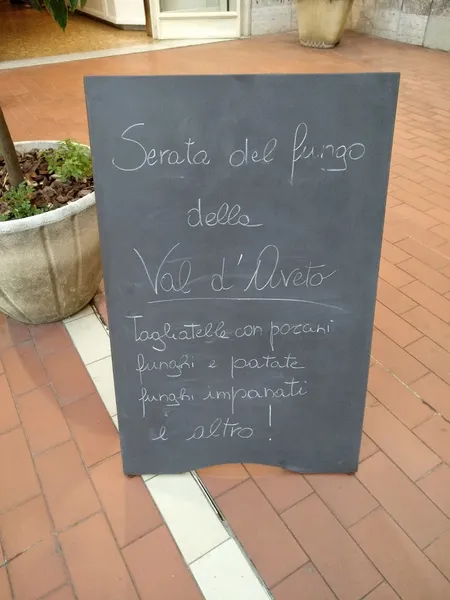 Serata del fungo
della
Val d'Aveto
Tagliatelle con porcini
funghi e patate
funghi impanati
e altro!